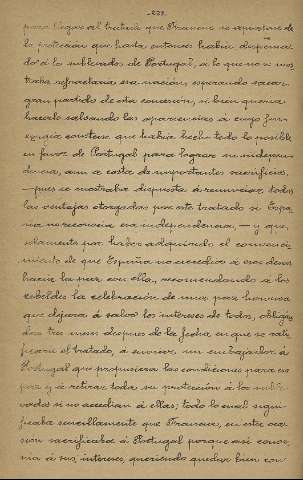 -223-
para llegar al tratado que Francia se apartase de
la protección que hasta entonces había dispensa-
do á la sublevada de Portugal, á lo que no se mos-
traba refractaria esa nación, esperando sacar
gran partido de esta concesion, si bien queria
hacerlo salvando las apariencias á cuyo fin
exigia constase que habia hecho todo lo posible
en favor de Portugal para lograr su indepen-
dencia, aun á costa de importantes sacrificios,
—pues se mostraba dispuesta á renunciar todas
las ventajas otorgadas por este tratado si Espa-
ña reconocia esa independencia,— y que,
solamente por haber adquirido el convenci-
miento de que España no accedia á sus deseos
hacía la paz con ella, recomendando á los
rebeldes la celebración de una paz honrosa
que dejara á salvo los intereses de todos, obligan-
dose tres meses despues de la fecha en que se rati-
ficara el tratado, á enviar un embajador á
Portugal que propusiera las condiciones para esa
paz y á retirar toda su protección á los suble-
vados si no accedian á ellas; todo lo cual signi-
ficaba sencillamente que Francia, en esta oca-
sion sacrificaba á Portugal porque asi conve-
nia á sus intereses, queriendo quedar bien con